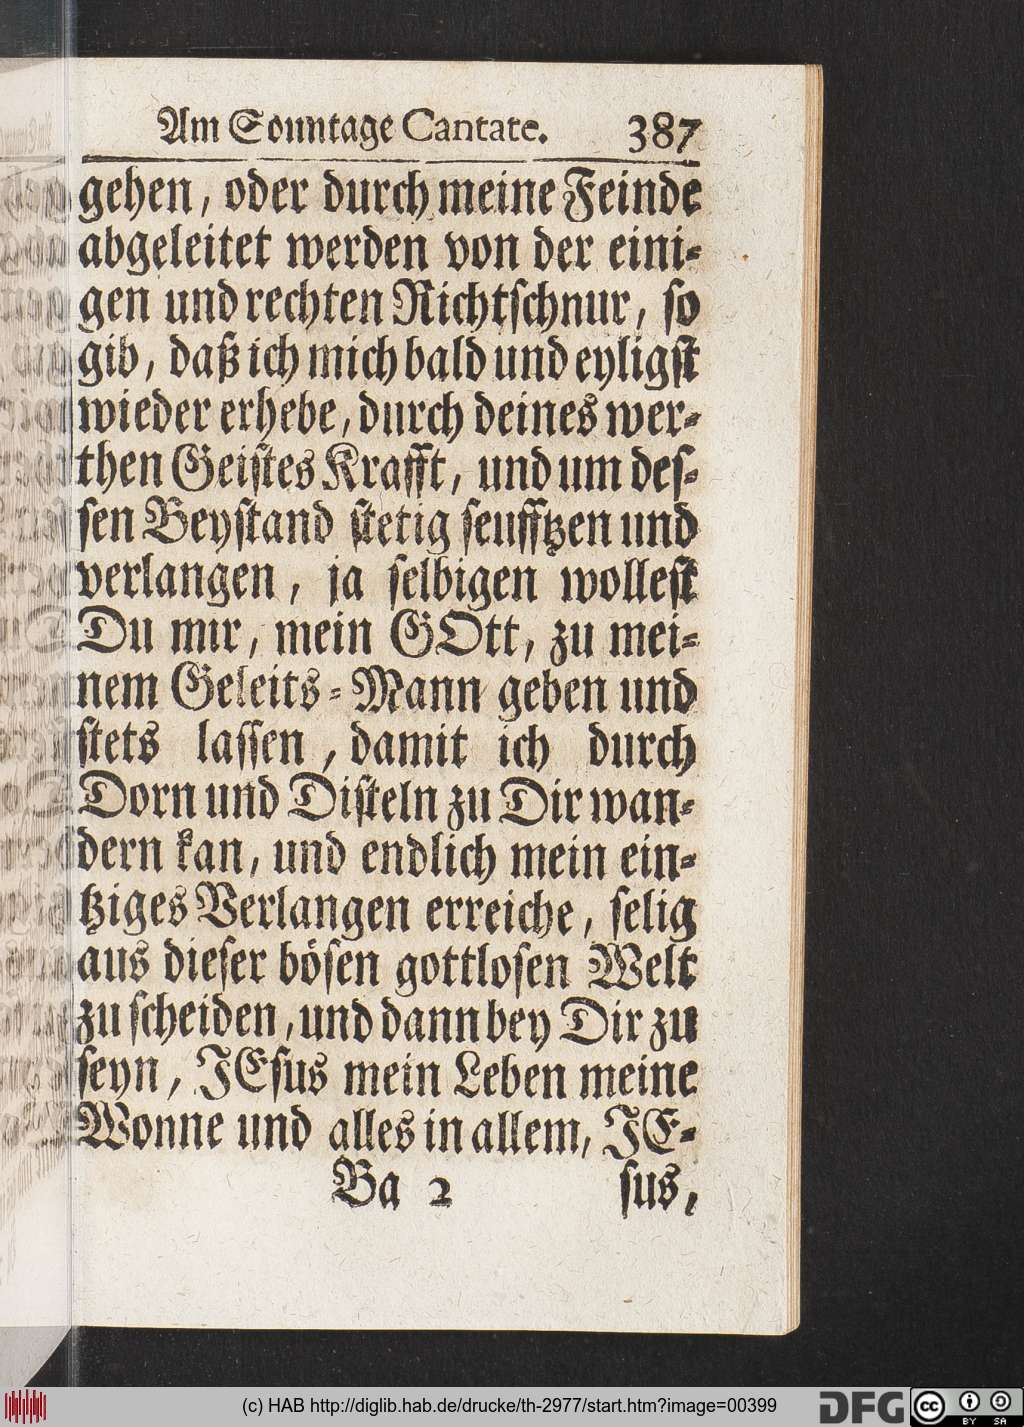 Am Sonntage Cantate. 387
gehen, oder durch meine Feinde
abgeleitet werden von der eini-
gen und rechten Richtschnur, so
gib, daß ich mich bald und eyligst
wieder erhebe, durch deines wer-
then Geistes Krafft, und um des-
sen Beystand stetig seufftzen und
verlangen, ja selbigen wollest
Du mir, mein GOtt, zu mei-
nem Geleits-Mann geben und
stets lassen, damit ich durch
Dorn und Disteln zu Dir wan-
dern kan, und endlich mein ein-
tziges Verlangen erreiche, selig
aus dieser bösen gottlosen Welt
zu scheiden, und dann bey Dir zu
seyn, JEsus mein Leben meine
Wonne und alles in allem, JE-
Ba 2 sus,
(c) HAB http://diglib.hab.de/drucke/th-2977/start.htm?image=00399
DFG cc BY SA